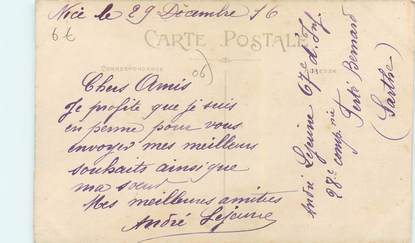 Nice le 29 Décembre 16
6€
CARTE POSTALE
CORRESPONDANCE
(06)
ADRESSE
Chers Amis
Je profite que je suis
en perme pour vous
envoyer mes meilleurs
souhaits ainsi que
ma soeur
Mes meilleures amitiés
André Lejeune
André Lejeune 67e d. Inf.
28e compnie
Ferté Bernard
(Sarthe)